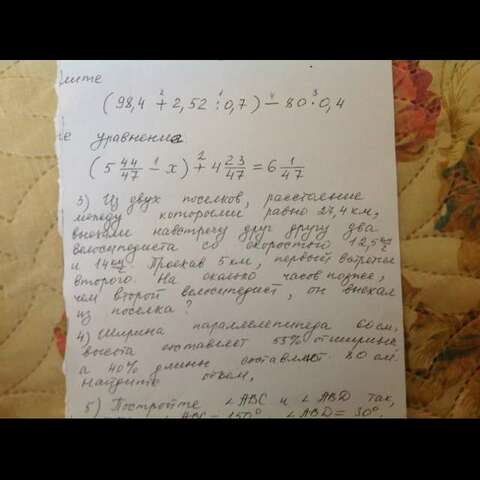 лите
(98,4 + 2,52 : 0,7) − 80 · 0,4
2 1 4 3
уравнение
(5 44/47 − x) + 4 23/47 = 6 1/47
1 2
3) Из двух поселков, расстояние
между которыми равно 27,4 км,
выехали навстречу друг другу два
велосипедиста со скоростью 12,5 км/ч
и 14 км/ч. Проехав 5 км, первый встретил
второго. На сколько часов позднее,
чем второй велосипедист, он выехал
из поселка?
4) Ширина параллелепипеда
высота составляет 55% от ширины
а 40% длины составляют 80 см.
Найдите объем,
5) Постройте ∠ABC и ∠ABD так,
∠ABC = 150° ∠ABD = 30°.